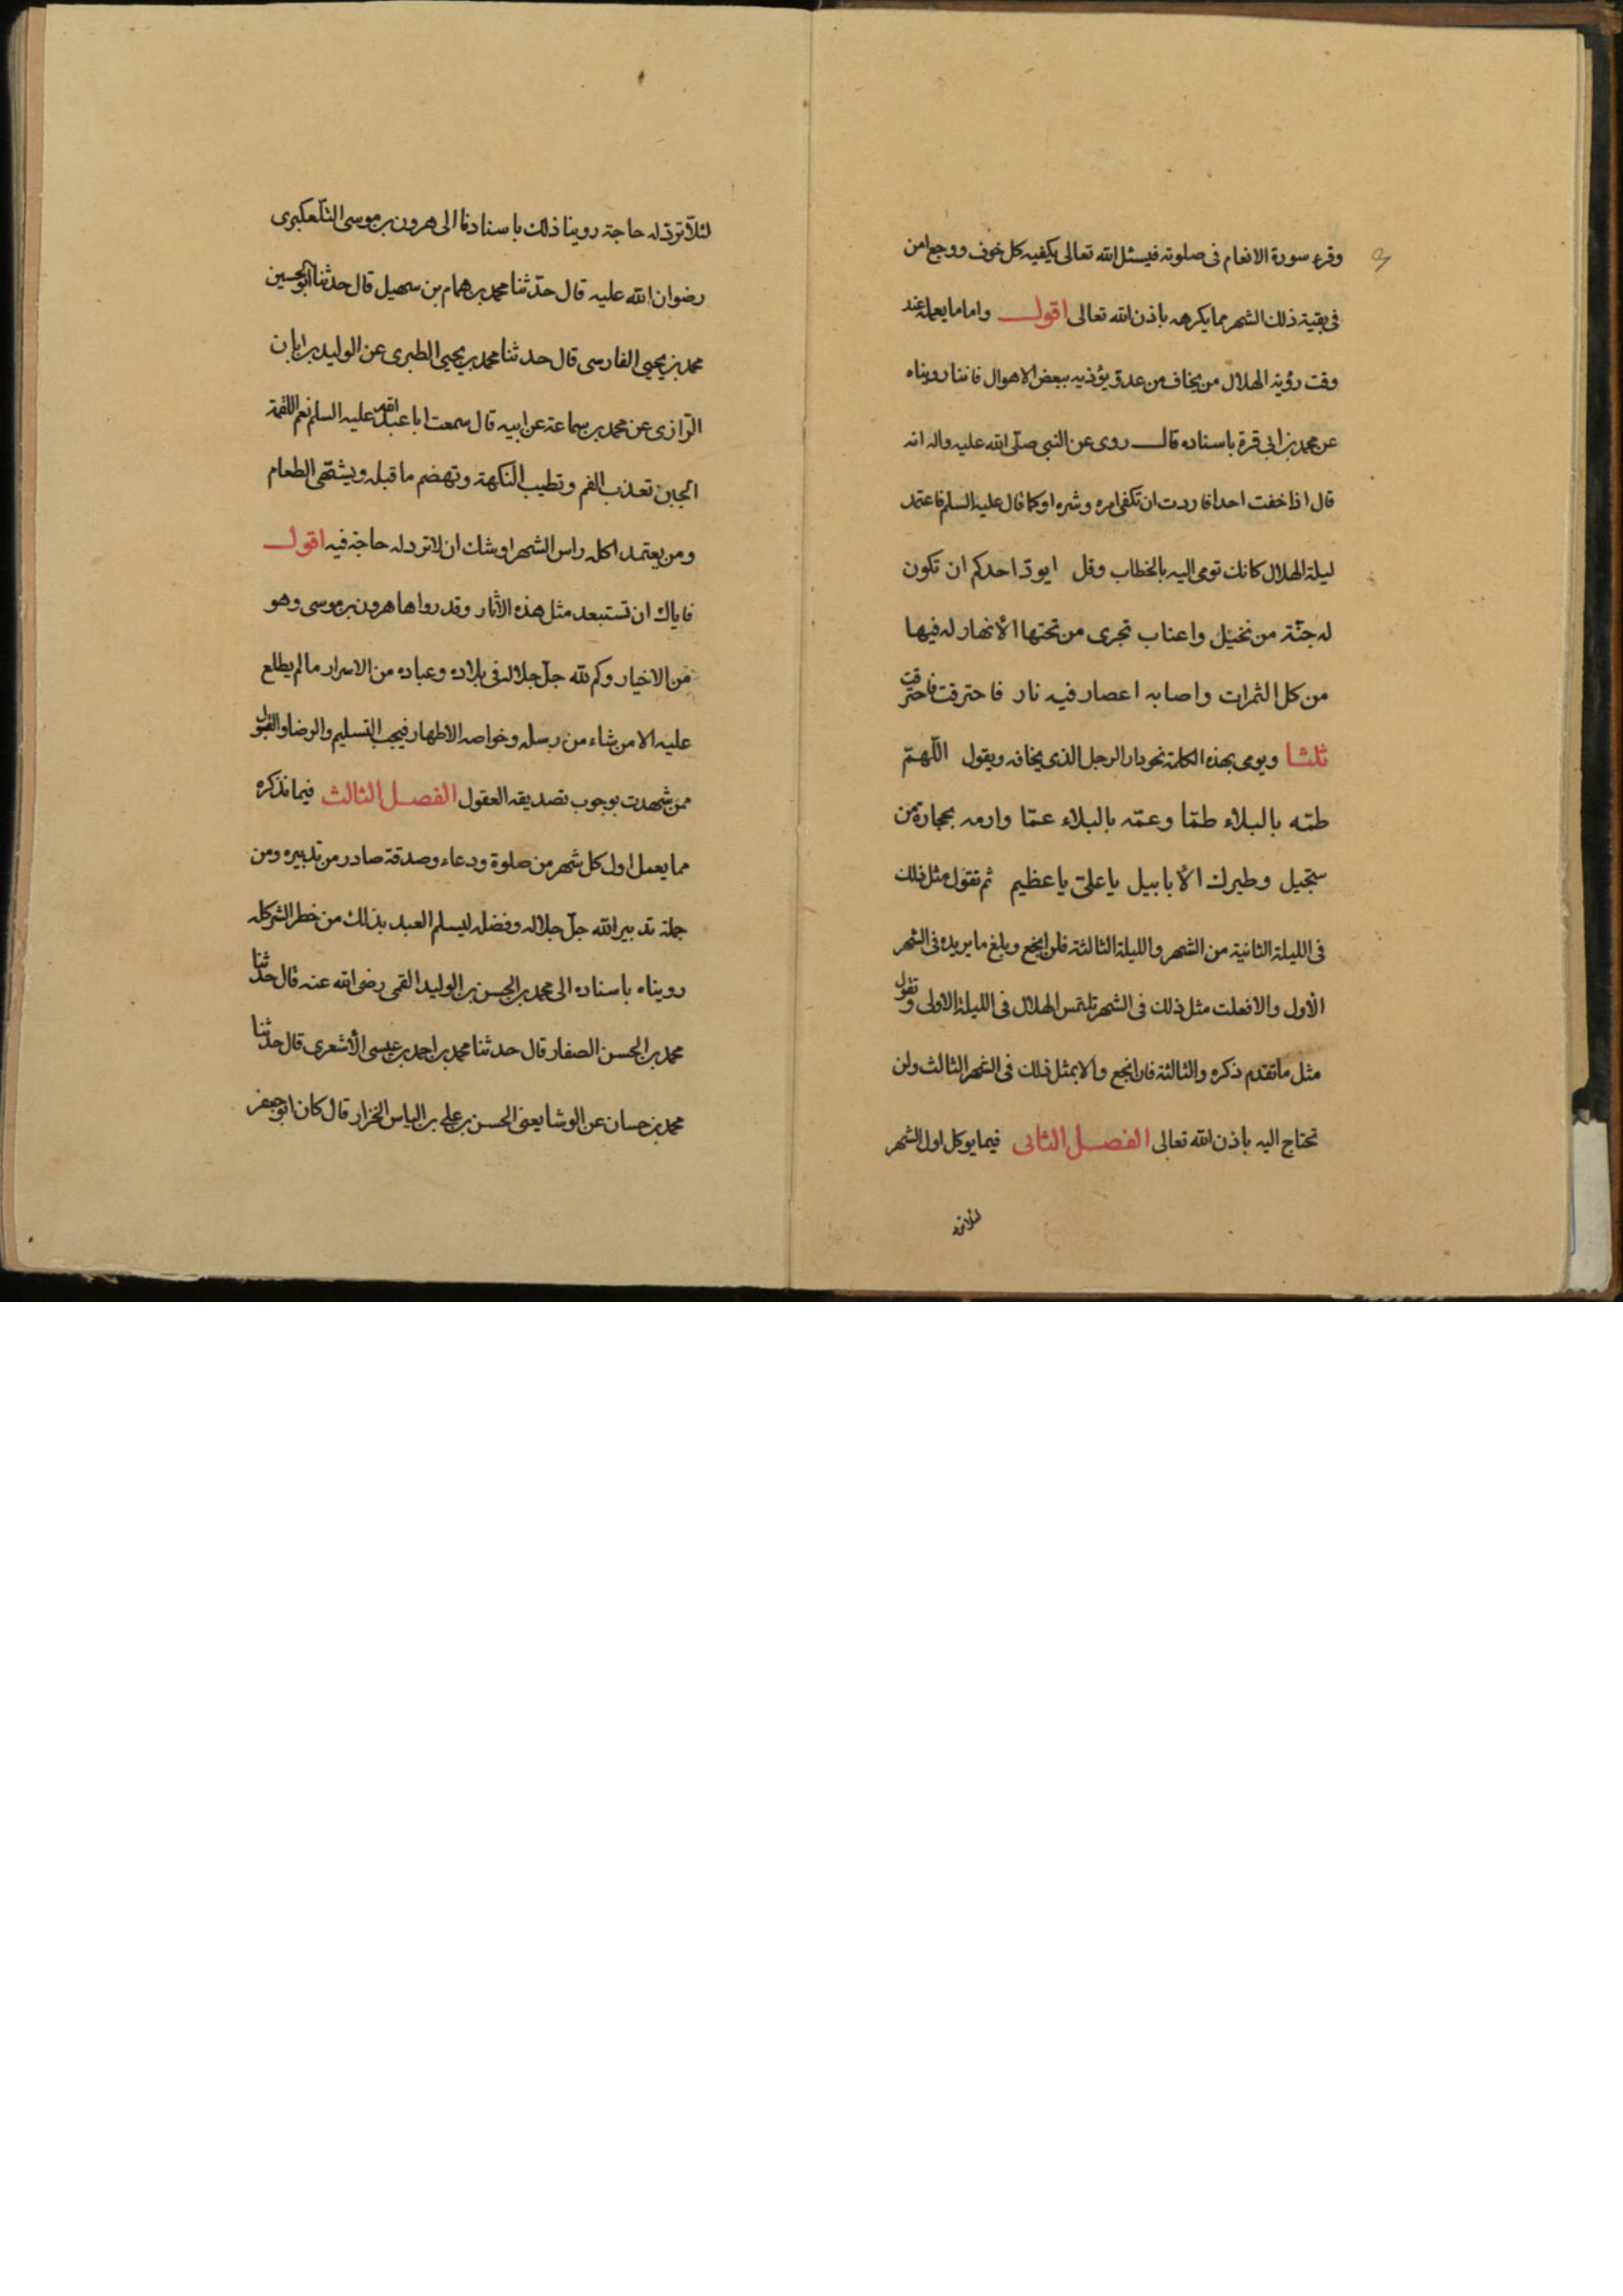 وقرء سورة الانعام فى صلوته فيسئل الله تعالى يكفيه كل خوف ووجع امن
فى بقية ذلك الشهر مما يكرهه باذن الله تعالى اقول واما ما يعمله عند
وقت رؤية الهلال من يخاف من عدو يؤذيه ببعض الاهوال فاننا رويناه
عن محمد بن ابى قرة باسناده قال روى عن النبى صلى الله عليه واله انه
قال اذا خفت احدا فاردت ان تكفى امره وشره او كما قال عليه السلم فاعتمد
ليلة الهلال كانك تومى اليه بالخطاب وقل ايودّ احدكم ان تكون
له جنّة من نخيل واعناب تجرى من تحتها الأنهار له فيها
من كل الثمرات واصابه اعصار فيه نار فاحترقت فاحترقت
ثلثا ويومى بهذه الكلمة نحو دار الرجل الذى يخافه ويقول اللّهمّ
طمّه بالبلاء طمّا وعمّه بالبلاء عمّا وارمه بحجارة من
سجّيل وطيرك الأبابيل ياعلىّ ياعظيم ثم تقول مثل ذلك
فى الليلة الثانية من الشهر والليلة الثالثة فان انجع وبلغ ما يريده فى الشهر
الأول والا فعلت مثل ذلك فى الشهر تلتمس الهلال فى الليلة الاولى وتقول
مثل ما تقدم ذكره والثالثة فان انجع والا بمثل ذلك فى الشهر الثالث ولن
تحتاج اليه باذن الله تعالى الفصل الثانى فيما يوكل اول الشهر
لئلا ترد
لئلّا تردّ له حاجة روينا ذلك باسنادنا الى هرون بن موسى التلّعكبرى
رضوان الله عليه قال حدّثنا محمد بن همام بن سهيل قال حدثنا ابو الحسين
محمد بن يحيى الفارسى قال حدثنا محمد بن يحيى الطبرى عن الوليد بن ابان
الرازى عن محمد بن سماعة عن ابيه قال سمعت ابا عبد الله عليه السلم نعم اللقمة
الجبن تعذب الفم وتطيب النكهة وتهضم ما قبله ويشهّى الطعام
ومن يعتمد اكله راس الشهر اوشك ان لا ترد له حاجة فيه اقول
فاياك ان تستبعد مثل هذه الاثار وقد رواها هرون بن موسى وهو
من الاخيار وكم لله جلّ جلاله فى بلاده وعباده من الاسرار ما لم يطلع
عليه الا من شاء من رسله وخواصه الاطهار فيجب التسليم والرضا والقبول
ممن شهدت بوجوب تصديقه العقول الفصل الثالث فيما نذكره
مما يعمل اول كل شهر من صلوة ودعاء وصدقة صادر من تدبيره ومن
جملة تدبير الله جلّ جلاله وفضله ليسلم العبد بذلك من خطر الشهر كله
رويناه باسناده الى محمد بن الحسن بن الوليد القمى رضى الله عنه قال حدثنا
محمد بن الحسن الصفار قال حدثنا محمد بن احمد بن عيسى الأشعرى قال حدثنا
محمد بن حسان عن الوشا يعنى الحسن بن على بن الياس الخزاز قال كان ابو جعفر